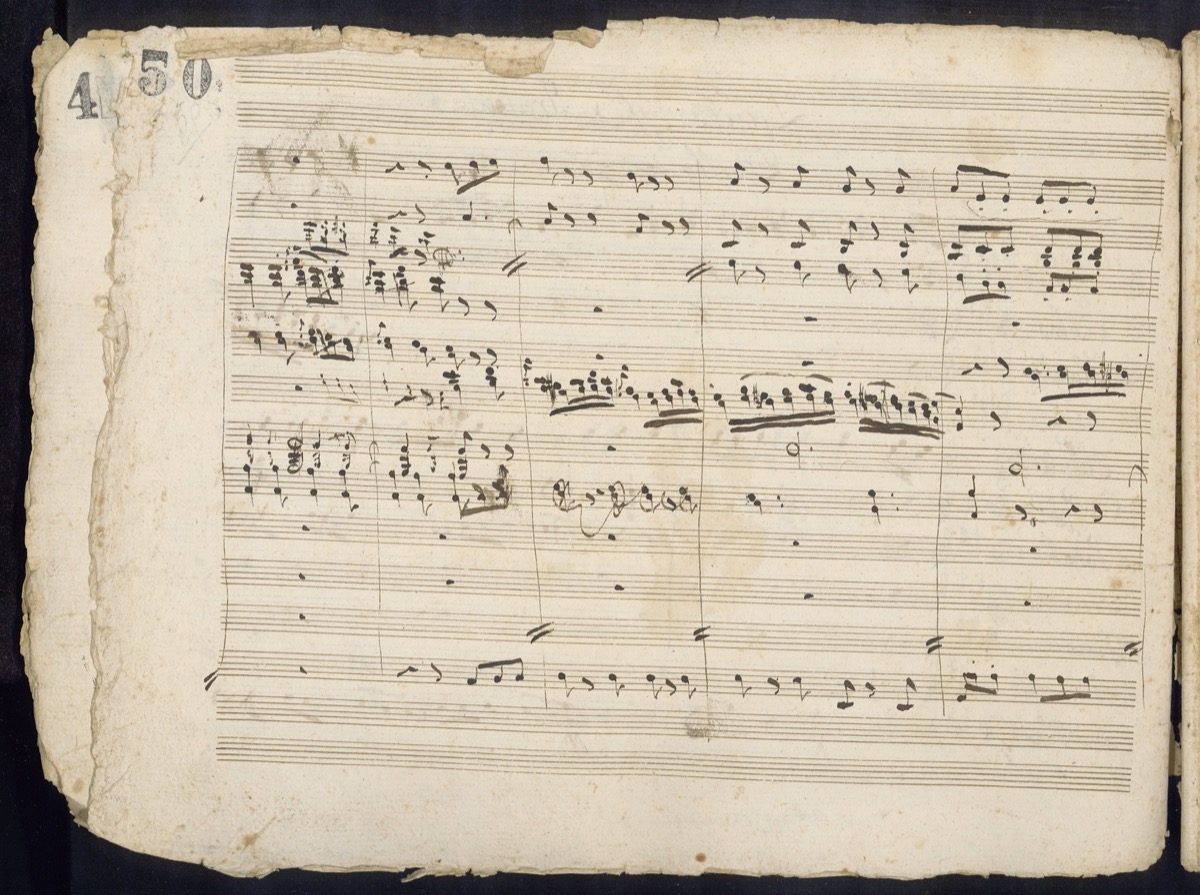 4 5 0